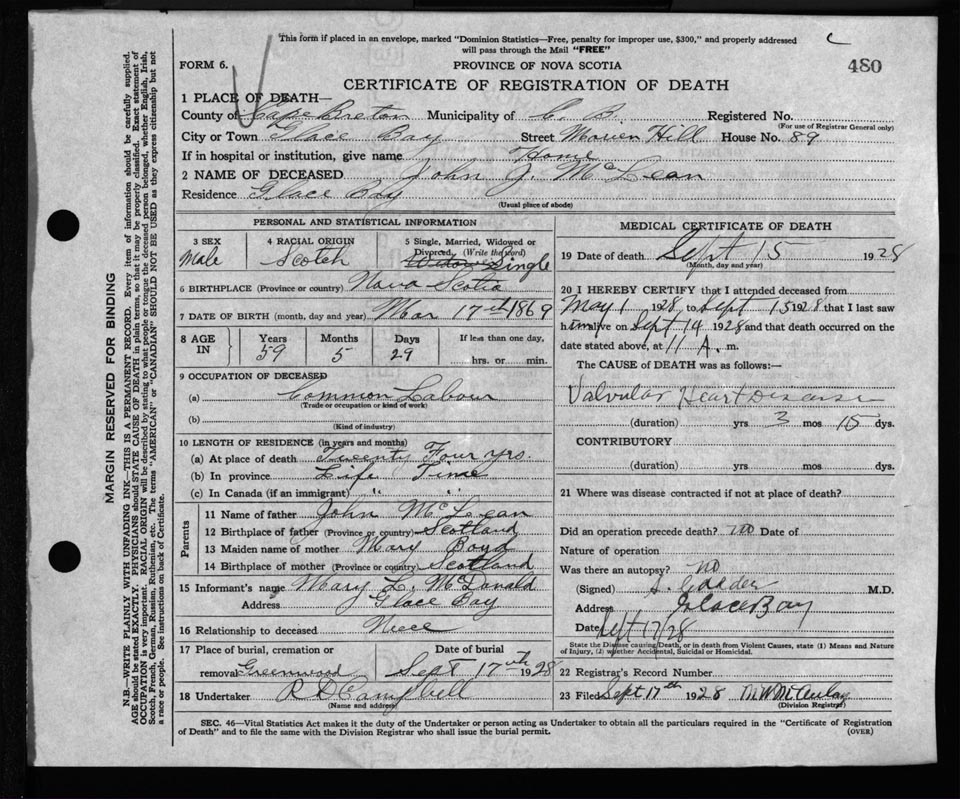 This form if placed in an envelope, marked "Dominion Statistics—Free, penalty for improper use, $300," and properly addressed
will pass through the Mail "FREE"
FORM 6. PROVINCE OF NOVA SCOTIA 480
CERTIFICATE OF REGISTRATION OF DEATH
1 PLACE OF DEATH—
County of Cape Breton Municipality of C. B. Registered No.
(For use of Registrar General only)
City or Town Glace Bay Street Morien Hill House No. 89
If in hospital or institution, give name Home
2 NAME OF DECEASED John J. McLean
Residence Glace Bay
(Usual place of abode)
PERSONAL AND STATISTICAL INFORMATION
3 SEX 4 RACIAL ORIGIN 5 Single, Married, Widowed or
Divorced (Write the word)
Male Scotch Single
6 BIRTHPLACE (Province or country) Nova Scotia
7 DATE OF BIRTH (month, day and year) Mar 17th 1869
8 AGE IN Years Months Days If less than one day,
59 5 29 hrs. or min.
9 OCCUPATION OF DECEASED
(a) Common Labour
(Trade or occupation or kind of work)
(b)
(Kind of industry)
10 LENGTH OF RESIDENCE (in years and months)
(a) At place of death Twenty Four yrs
(b) In province Life Time
(c) In Canada (if an immigrant) " "
Parents
11 Name of father John McLean
12 Birthplace of father (Province or country) Scotland
13 Maiden name of mother Mary Boyd
14 Birthplace of mother (Province or country) Scotland
15 Informant's name Mary L. McDonald
Address Glace Bay
16 Relationship to deceased Niece
17 Place of burial, cremation or Date of burial
removal Greenwood Sept 17th 1928
18 Undertaker R D Campbell
(Name and address)
MEDICAL CERTIFICATE OF DEATH
19 Date of death Sept 15 1928
(Month, day and year)
20 I HEREBY CERTIFY that I attended deceased from
May 1 1928 to Sept 15 1928 that I last saw
him alive on Sept 14 1928 and that death occurred on the
date stated above, at 11 A. m.
The CAUSE of DEATH was as follows:—
Valvular Heart Disease
(duration) yrs 3 mos 15 dys.
CONTRIBUTORY
(duration) yrs mos dys.
21 Where was disease contracted if not at place of death?
Did an operation precede death? no Date of
Nature of operation
Was there an autopsy? no
(Signed) M.D.
Address Glace Bay
Date Sept 17/28
State the Disease causing Death, or in death from Violent Causes, state (1) Means and Nature
of Injury, (2) whether Accidental, Suicidal or Homicidal.
22 Registrar's Record Number
23 Filed Sept 17th 1928
(Division Registrar)
SEC. 46—Vital Statistics Act makes it the duty of the Undertaker or person acting as Undertaker to obtain all the particulars required in the "Certificate of Registration
of Death" and to file the same with the Division Registrar who shall issue the burial permit. (OVER)
MARGIN RESERVED FOR BINDING
N.B.—WRITE PLAINLY WITH UNFADING INK—THIS IS A PERMANENT RECORD. Every item of information should be carefully supplied.
AGE should be stated EXACTLY. PHYSICIANS should STATE CAUSE OF DEATH in plain terms, so that it may be properly classified. Exact statement of
OCCUPATION is very important. RACIAL ORIGIN will be described by stating to what people or tongue the deceased person belonged, whether English, Irish,
Scotch, French, German, Russian, Ruthenian, etc. The terms "AMERICAN" or "CANADIAN" SHOULD NOT BE USED as they express citizenship but not
a race or people. See instructions on back of Certificate.